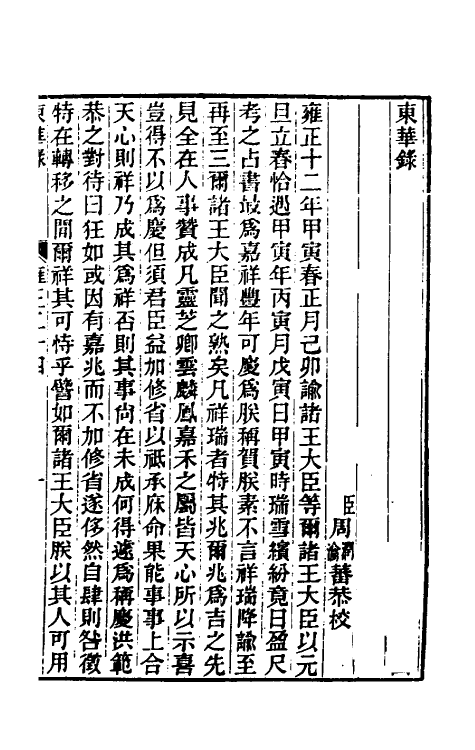 東華錄
臣周潤蕃恭校
雍正十二年甲寅春正月己卯諭諸王大臣等爾諸王大臣以元
旦立春恰遇甲寅年丙寅月戊寅日甲寅時瑞雪繽紛竟日盈尺
考之占書最為嘉祥豐年可慶為朕稱賀朕素不言祥瑞降諭至
再至三爾諸王大臣聞之熟矣凡祥瑞者特其兆爾兆為吉之先
見全在人事贊成凡靈芝卿雲麟鳳嘉禾之屬皆天心所以示喜
豈得不以為慶但須君臣益加修省以祗承庥命果能事事上合
天心則祥乃成其為祥否則其事尚在未成何得遽為稱慶洪範
恭之對待曰狂如或因有嘉兆而不加修省遂侈然自肆則咎徵
特在轉移之間爾祥其可恃乎譬如爾諸王大臣朕以其人可用
東華錄 雍正二十四 一